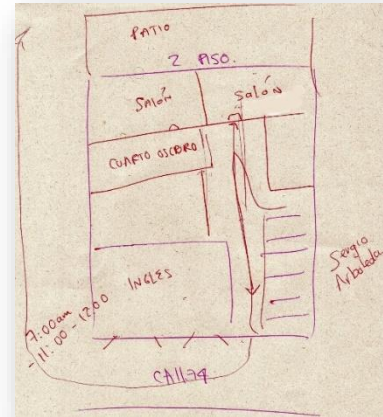 PATIO
2 PISO.
SALÓN
SALÓN
CUARTO OSCURO
INGLES
Sergio
Arboleda
7:00am
-11:00-12:00
CAll 74